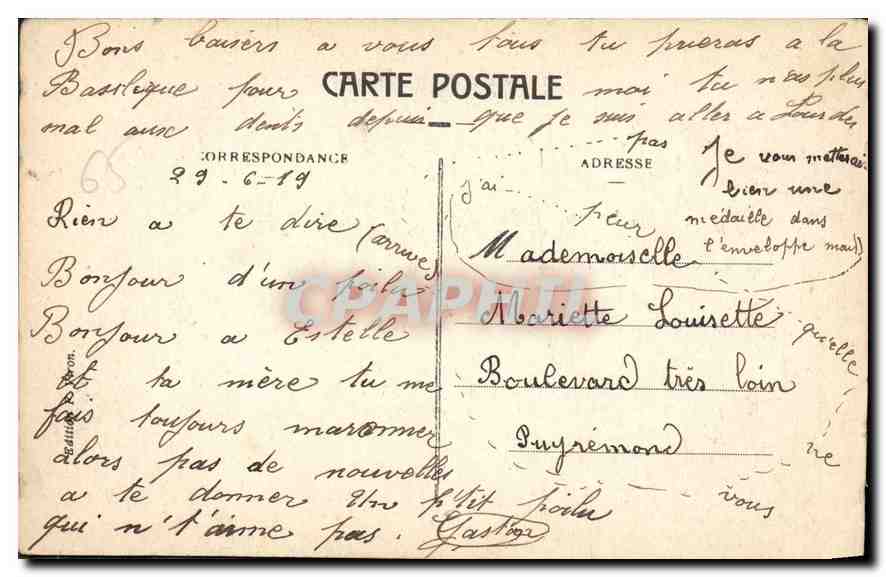 Bons baisers a vous tous tu prieras a la
Basilique pour moi tu n'as plus
CARTE POSTALE
mal aux dents depuis que je suis aller a Lourdes
CORRESPONDANCE
29-6-19
Rien a te dire
(arrive)
Bonjour d'un poilu
Bonjour a Estelle
et ta mère tu me
fais toujours maronner
alors pas de nouvelles
a te donner Un p'tit poilu
qui n't'aime pas. Gaston
ADRESSE
Je vous metterai
bien une
médaille dans
l'enveloppe mais
j'ai
peur
qu'elle
ne
vous
pas
Mademoiselle
Mariette Louisette
Boulevard très loin
Puyrémond
65
Edition
CPAPHIL